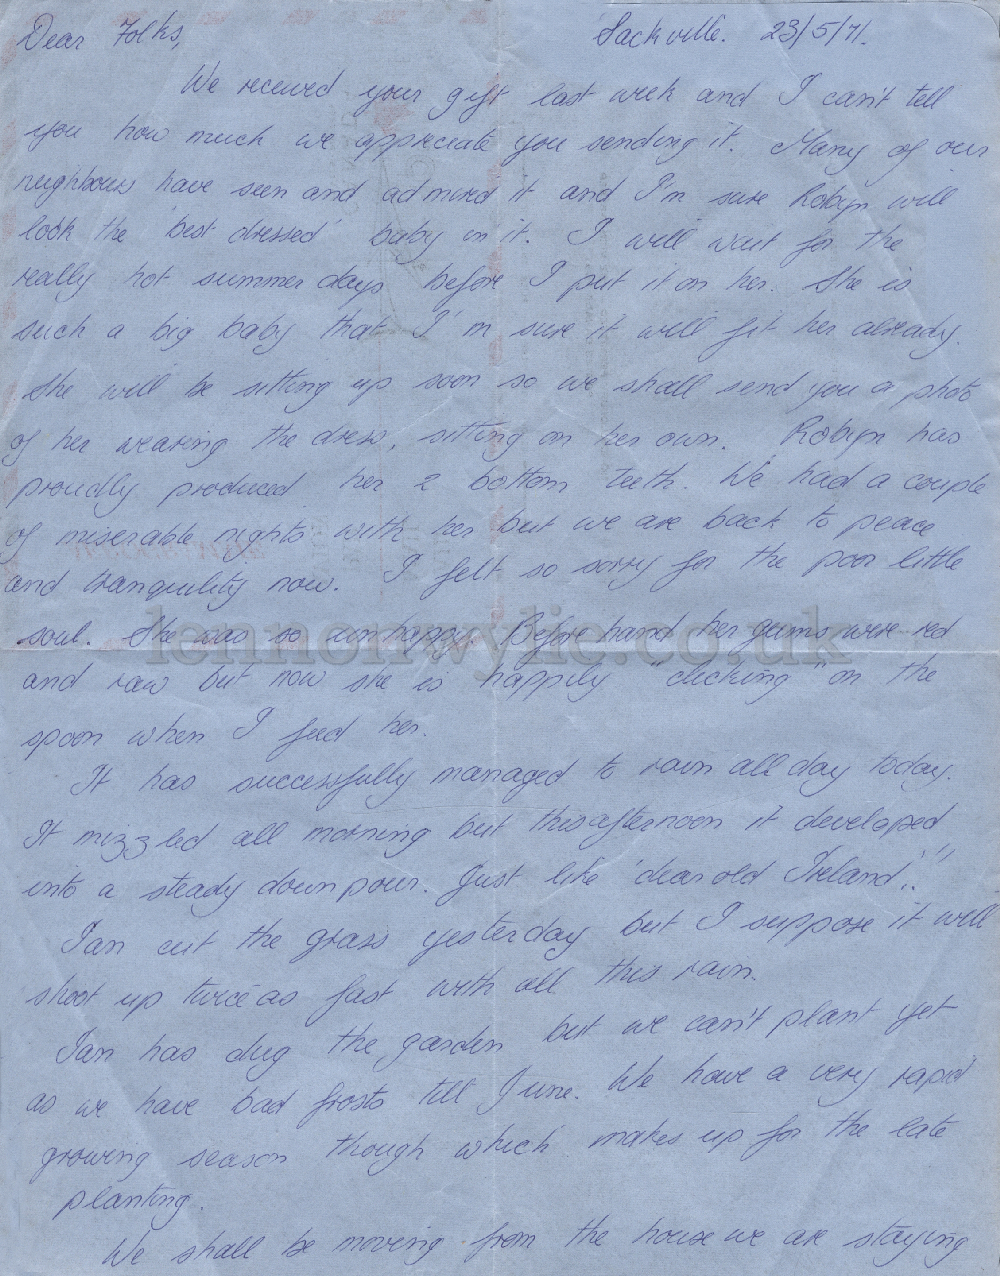 Dear Folks, Sackville. 23/5/71.
We received your gift last week and I can't tell
you how much we appreciate you sending it. Many of our
neighbours have seen and admired it and I'm sure Robyn will
look the 'best dressed' baby in it. I will wait for the
really hot summer days before I put it on her. She is
such a big baby that I'm sure it will fit her already.
She will be sitting up soon so we shall send you a photo
of her wearing the dress, sitting on her own. Robyn has
proudly produced her 2 bottom teeth. We had a couple
of miserable nights with her but we are back to peace
and tranquility now. I felt so sorry for the poor little
soul. She was so unhappy. Before hand her gums were red
lennonwylie.co.uk
and raw but now she is happily "clicking" on the
spoon when I feed her.
It has successfully managed to rain all day today.
It mizzled all morning but this afternoon it developed
into a steady down pour. Just like 'dear old Ireland'!!
Ian cut the grass yesterday but I suppose it will
shoot up twice as fast with all this rain.
Ian has dug the garden but we can't plant yet
as we have bad frosts till June. We have a very rapid
growing season though which makes up for the late
planting.
We shall be moving from the house we are staying